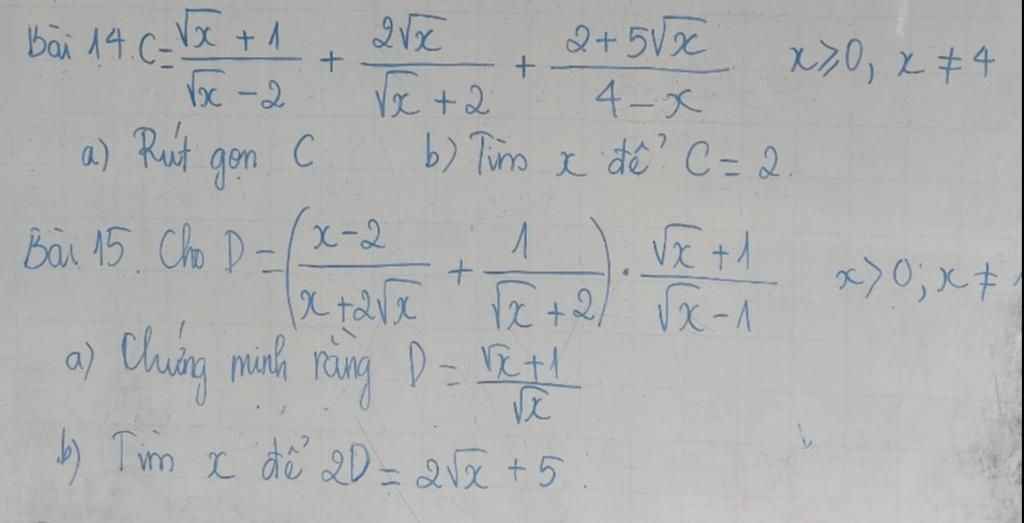 Bài 14. C = (√x + 1)/(√x - 2) + 2√x/(√x + 2) + (2 + 5√x)/(4 - x) x ≥ 0, x ≠ 4
a) Rút gọn C b) Tìm x để C = 2.
Bài 15. Cho D = ((x - 2)/(x + 2√x) + 1/(√x + 2)) · (√x + 1)/(√x - 1) x > 0; x ≠
a) Chứng minh rằng D = (√x + 1)/√x
b) Tìm x để 2D = 2√x + 5.